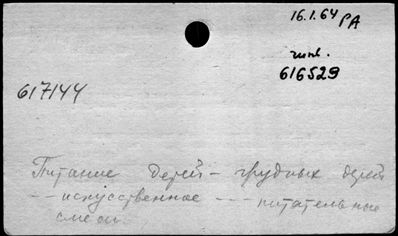 16.1.64 РА
616529
617144
Питание детей – грудных детей
–– искусственное –– –– питательные
смеси